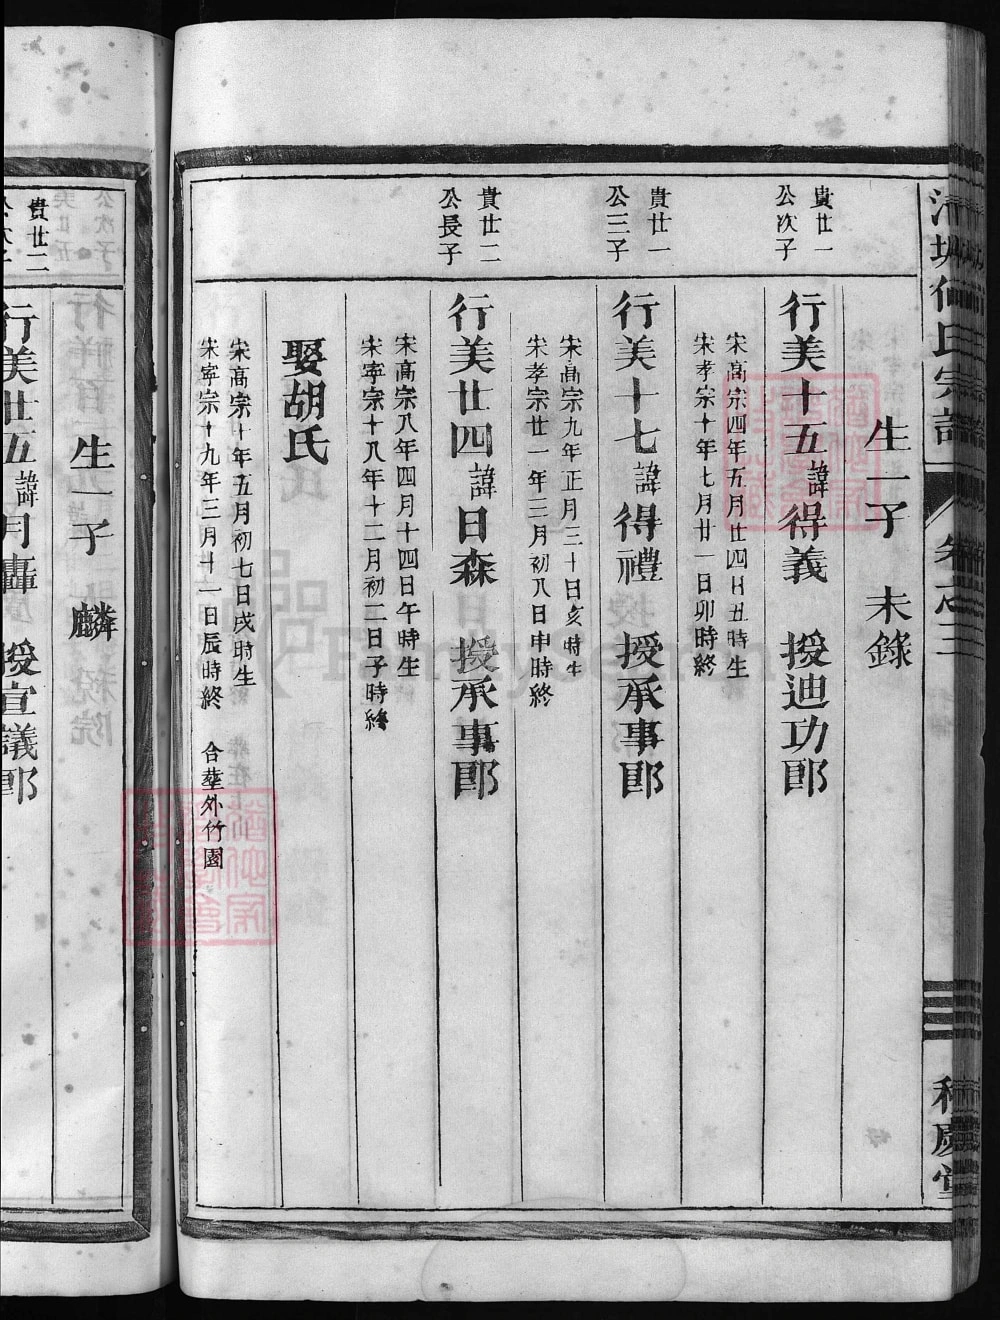 何氏宗譜
卷之三
生一子 未錄
貴廿一
公次子
行美十五諱得義 授迪功郎
宋高宗四年五月廿四日丑時生
宋孝宗十年七月廿一日卯時終
貴廿一
公三子
行美十七諱得禮 授承事郎
宋高宗九年正月三十日亥時生
宋孝宗廿一年三月初八日申時終
貴廿二
公長子
行美廿四諱日森 授承事郎
宋高宗八年四月十四日午時生
宋寧宗十八年十二月初二日子時終
娶胡氏
宋高宗十年五月初七日戌時生
宋寧宗十九年三月十一日辰時終 合塟外竹園
生一子 麟
貴廿二
公次子
行美廿五諱月轟 授宣議郎